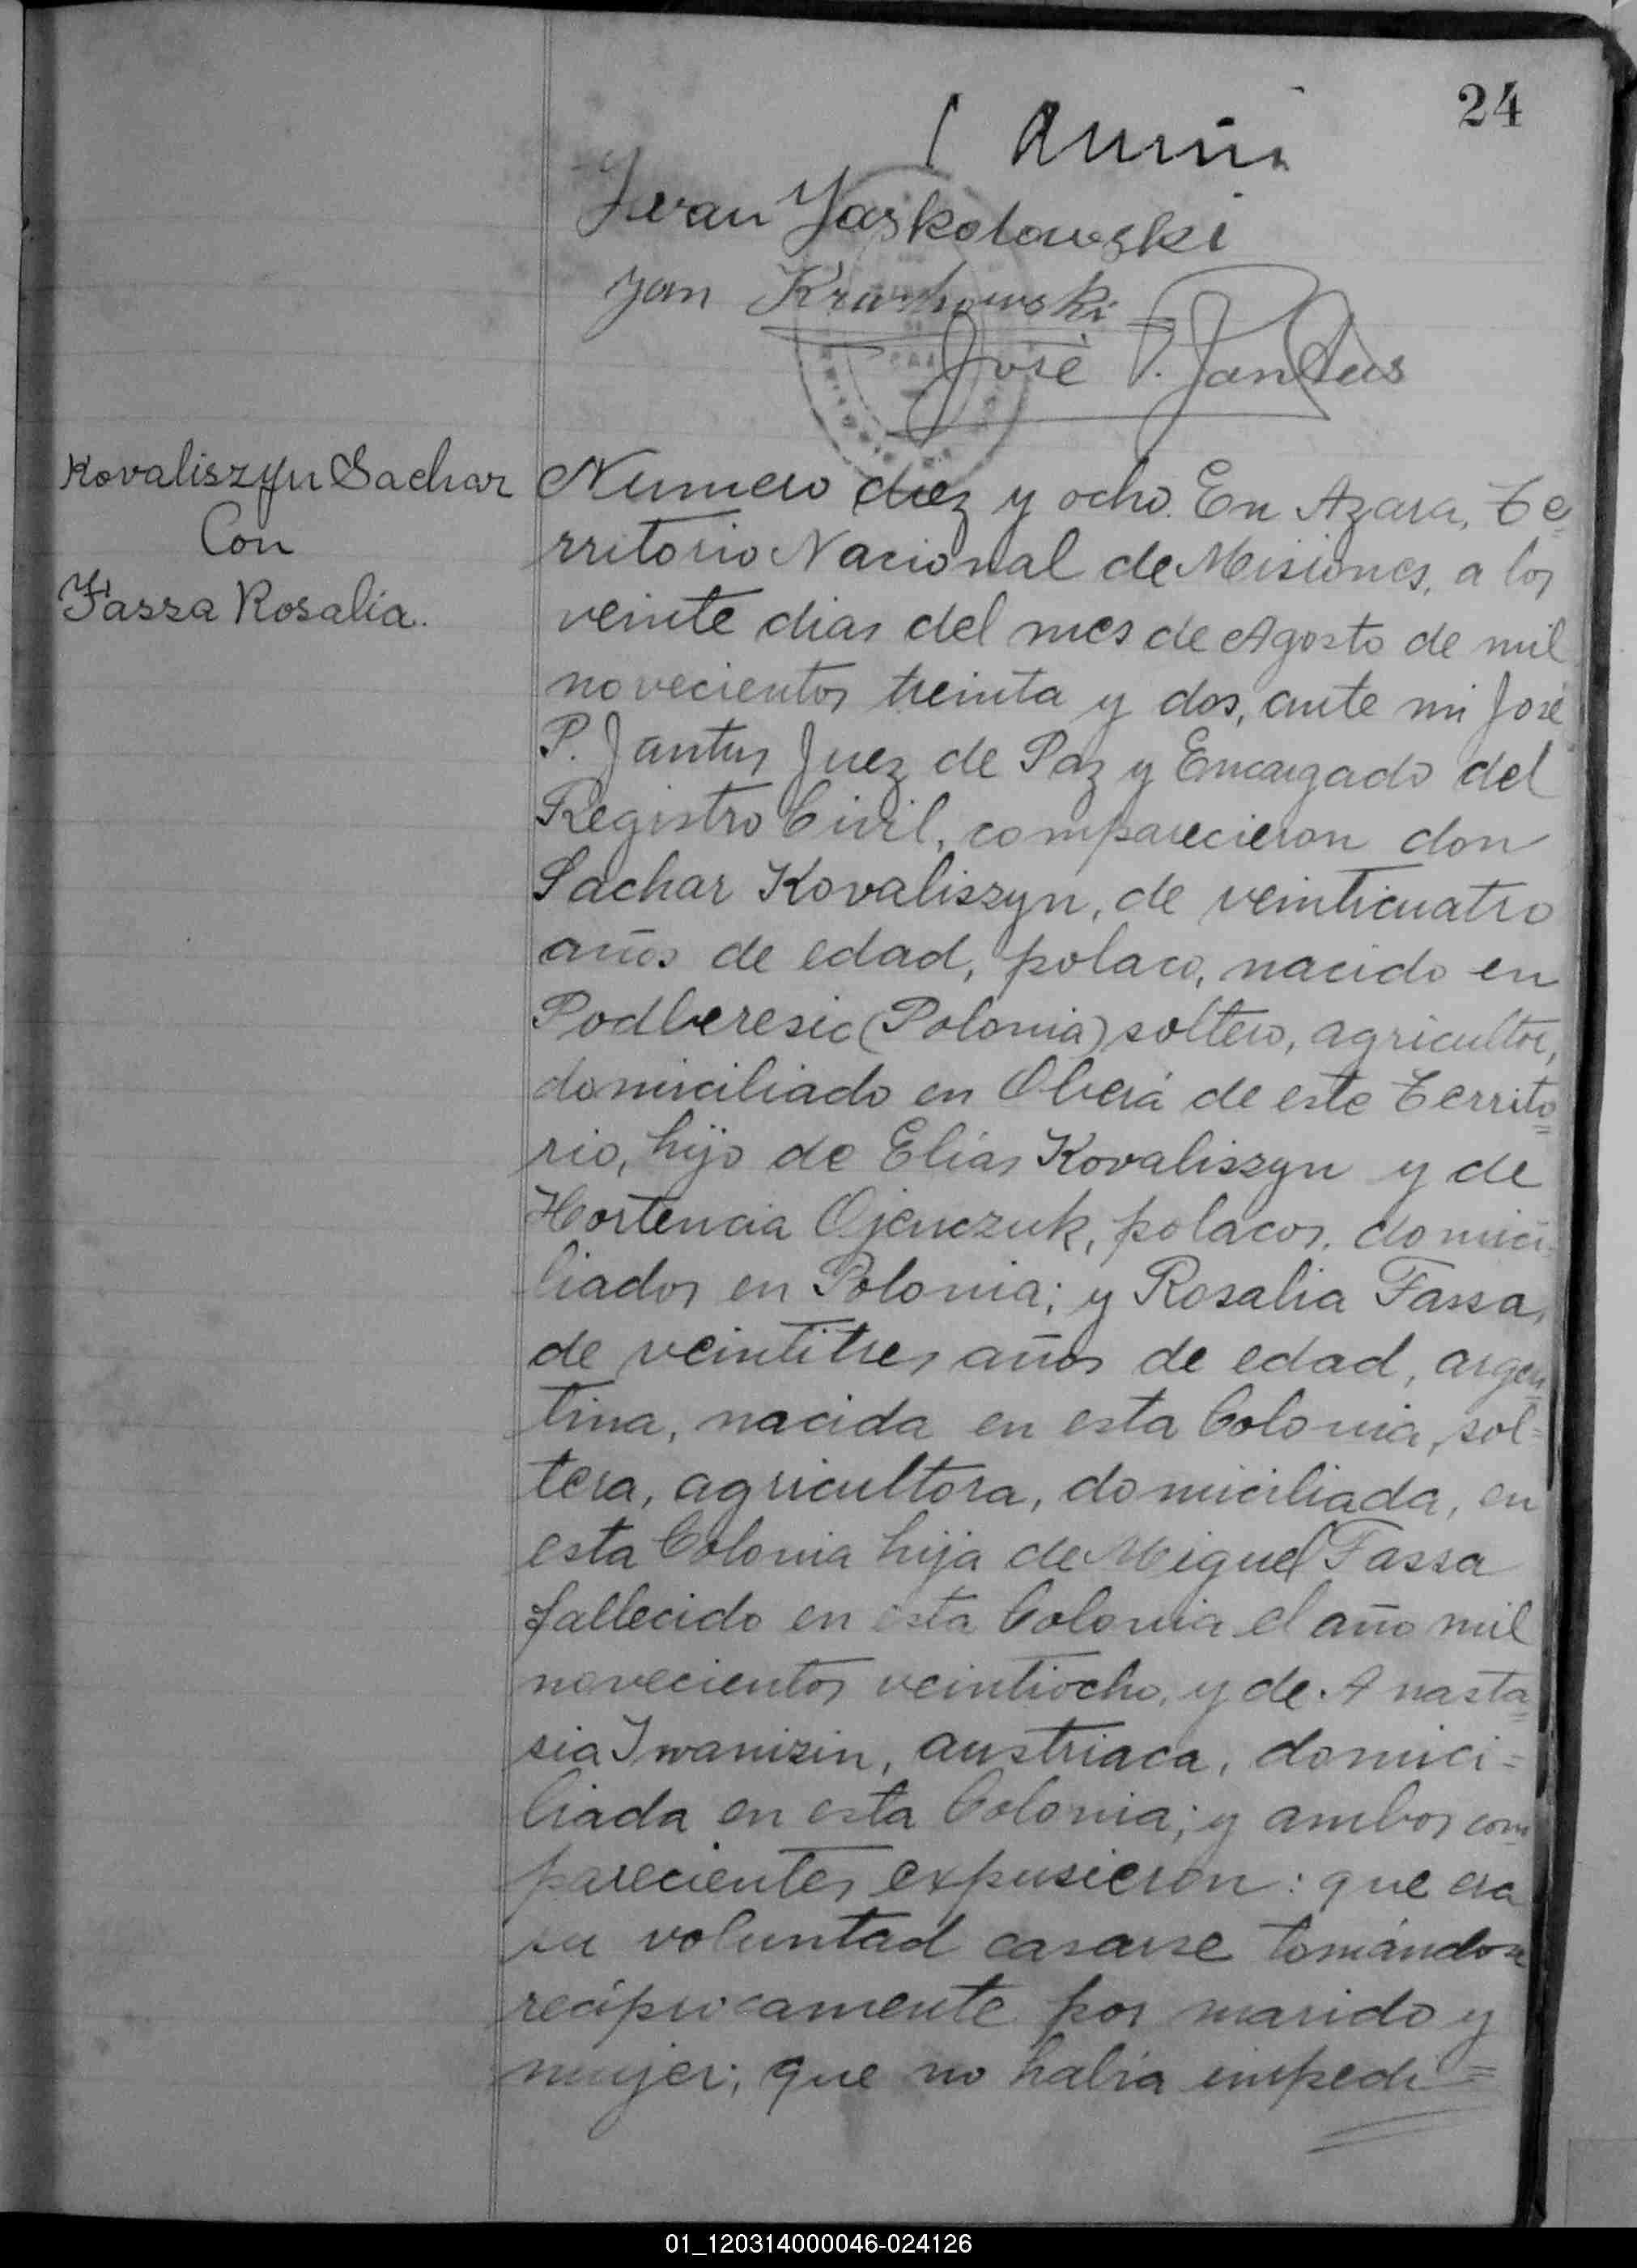 24
Iwan Jaskolowski
Jan
José P. Jantus
Kovaliszyn Sachar
Con
Fassa Rosalia.
Numero diez y ocho. En Azara, Te=
rritorio Nacional de Misiones, a los
veinte dias del mes de Agosto de mil
novecientos treinta y dos, ante mi José
P. Jantus Juez de Paz y Encargado del
Registro Civil, comparecieron don
Sachar Kovaliszyn, de veinticuatro
años de edad, polaco, nacido en
Podberesic (Polonia) soltero, agricultor,
domiciliado en Oberá de este Territo=
rio, hijo de Elias Kovaliszyn y de
Hortencia Ojenczuk, polacos, domici=
liados en Polonia; y Rosalia Fassa,
de veintitres años de edad, argen=
tina, nacida en esta Colonia, sol=
tera, agricultora, domiciliada, en
esta Colonia hija de Miguel Fassa
fallecido en esta Colonia el año mil
novecientos veintiocho, y de Anasta=
sia Iwanizin, austriaca, domici=
liada en esta Colonia; y ambos com
parecientes expusieron: que era
su voluntad casarse tomándose
recíprocamente por marido y
mujer; que no habia impedi=
01_120314000046-024126